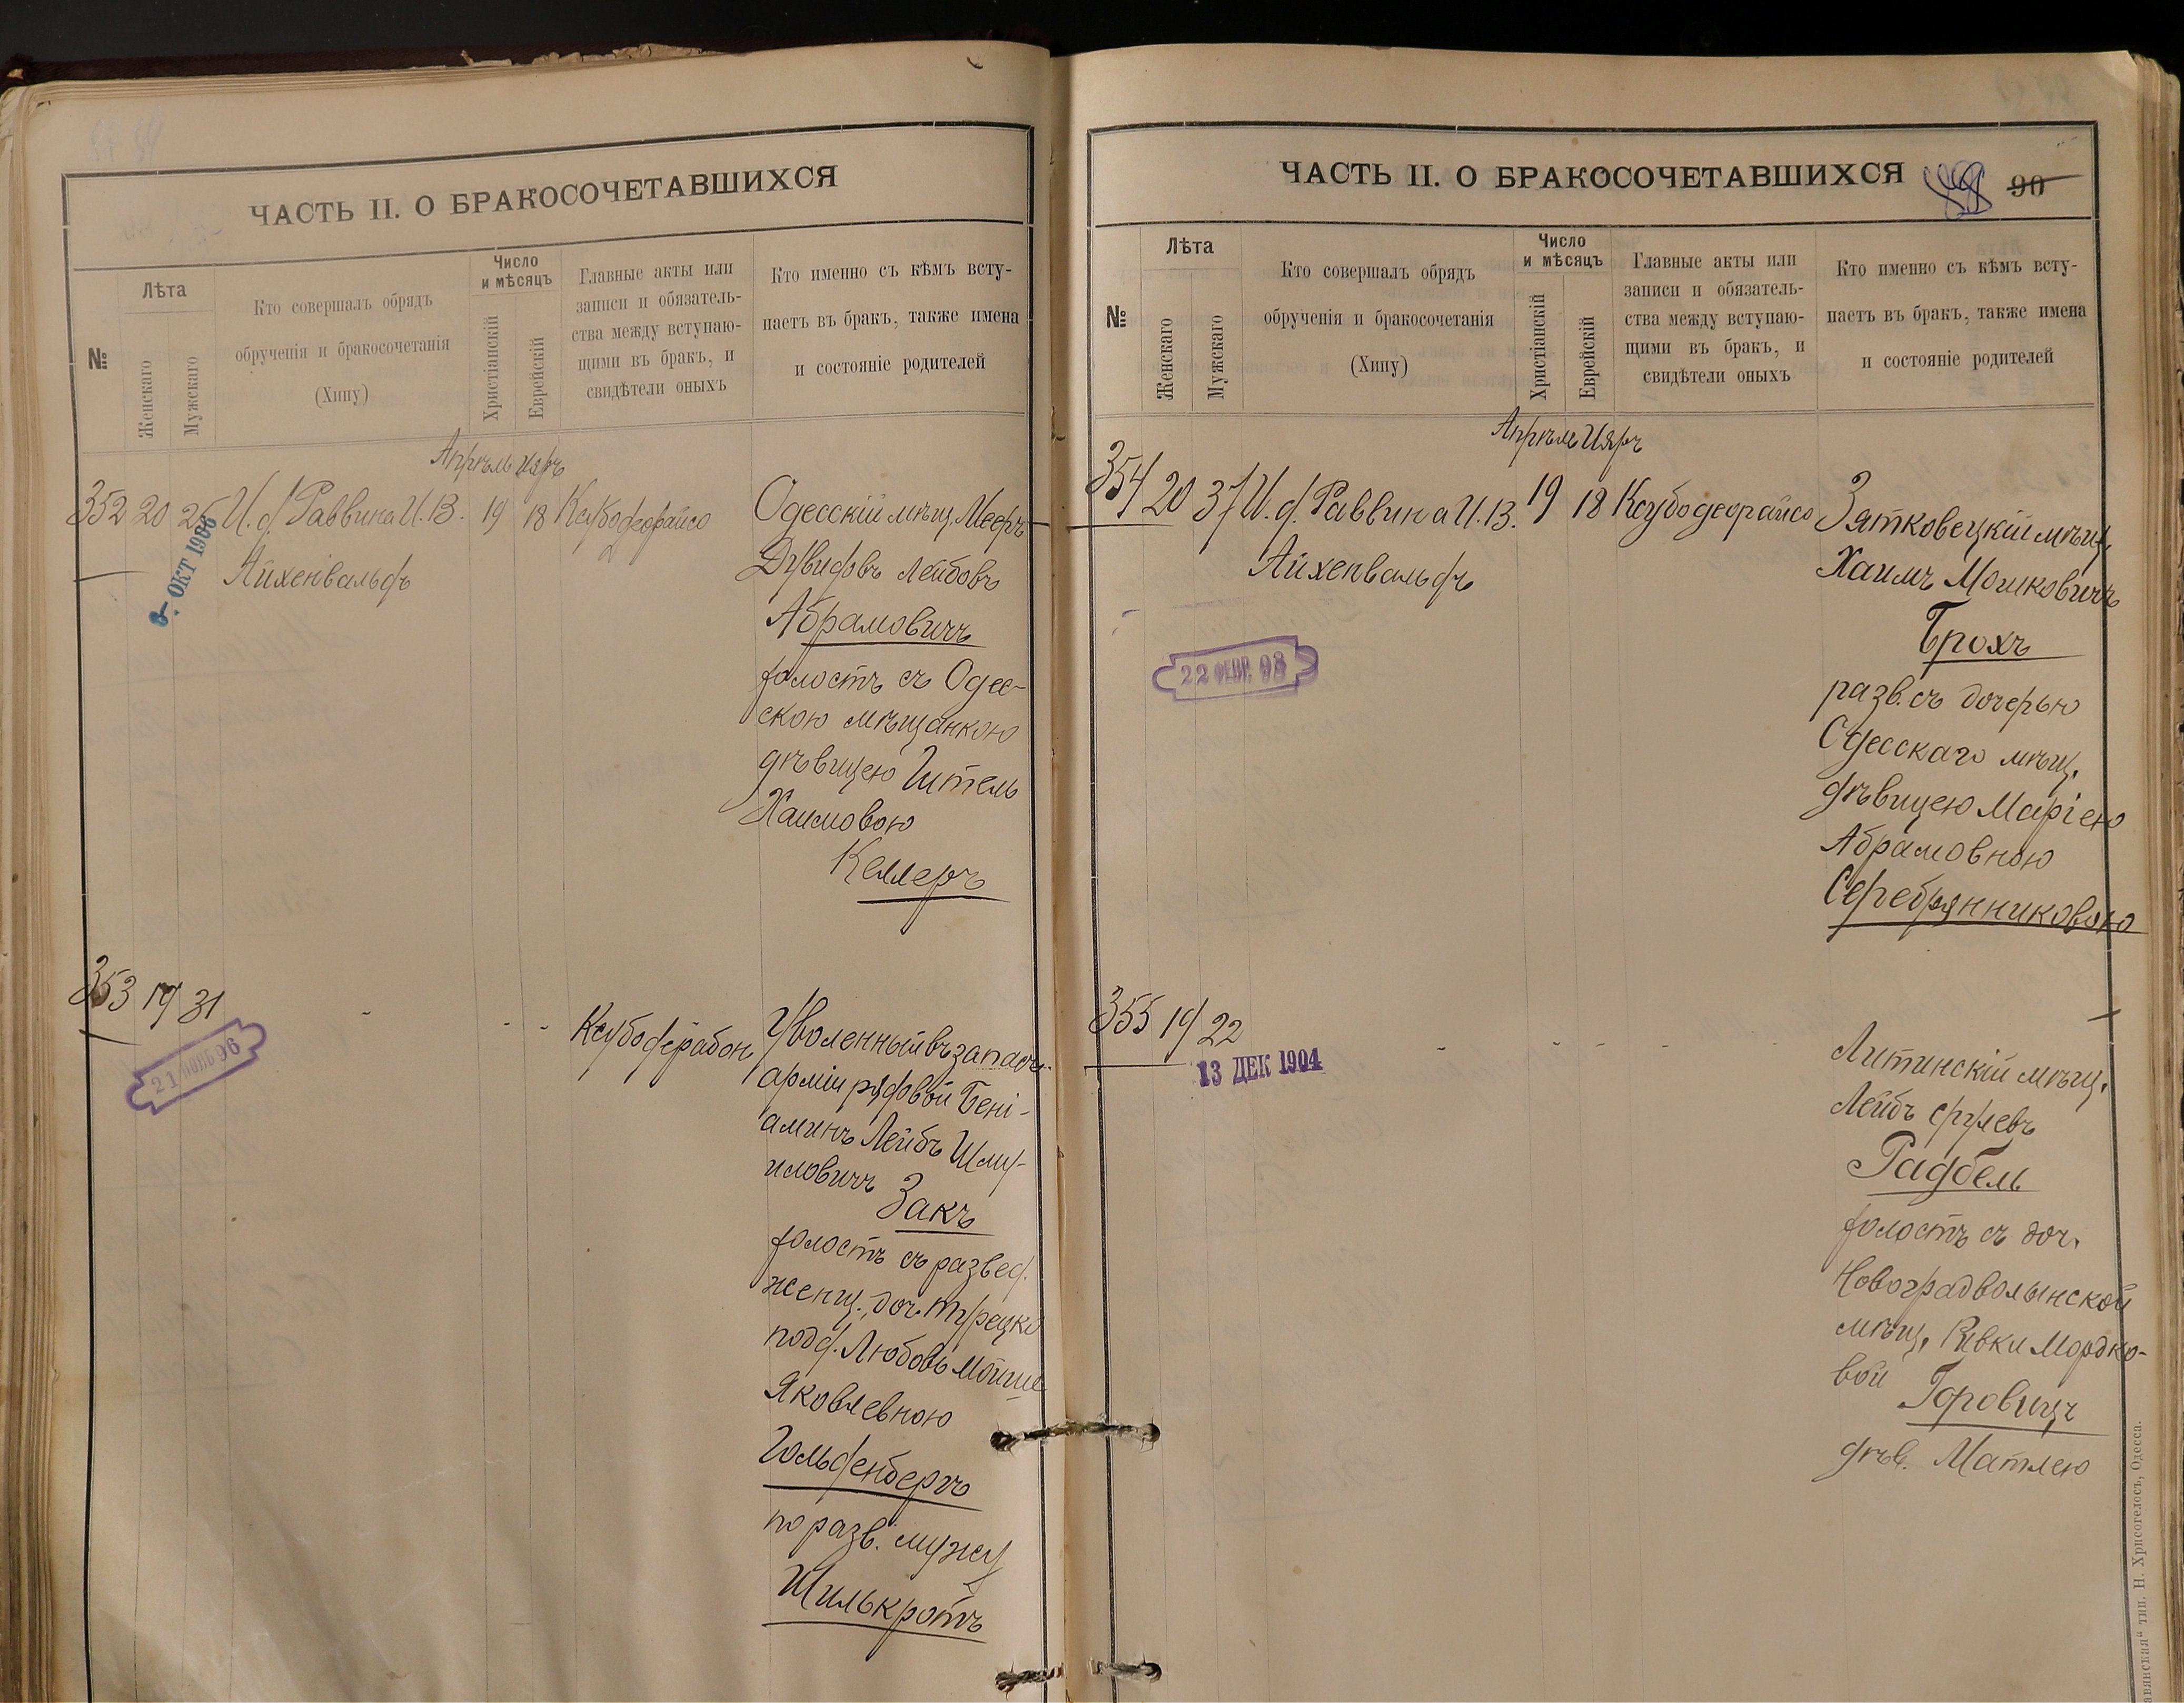 ЧАСТЬ II. О БРАКОСОЧЕТАВШИХСЯ
№
Лѣта
Женскаго
Мужскаго
Кто совершалъ обрядъ
обрученія и бракосочетанія
(Хипу)
Число
и мѣсяцъ
Христіанскій
Еврейскій
Главные акты или
записи и обязатель-
ства между вступаю-
щими въ бракъ, и
свидѣтели оныхъ
Кто именно съ кѣмъ всту-
паетъ въ бракъ, также имена
и состояніе родителей
Апрѣль Ияръ
352 20 25 И. д. Раввина И. В. 19 18 Ксубодефрайсо
Айхенвальдъ
8- ОКТ 1906
Одесскій мѣщ. Мееръ
Дувидовъ Лейбовъ
Абрамовичъ
холостъ съ Одес-
скою мѣщанкою
дѣвицею Гитель
Хаимовою
Келлеръ
353 19 31 - - - Ксубодерабон
21 НОЯБ 96
Уволенный въ запасъ
арміи рядовой Бені-
аминъ Лейбъ Шму-
иловичъ Закъ
холостъ съ развед.
женщ., доч. турецко
подд. Любовь Мойше
Яковлевною
Гольденбергъ
по разв. мужу
Шилькротъ
ЧАСТЬ II. О БРАКОСОЧЕТАВШИХСЯ
90
№
Лѣта
Женскаго
Мужскаго
Кто совершалъ обрядъ
обрученія и бракосочетанія
(Хипу)
Число
и мѣсяцъ
Христіанскій
Еврейскій
Главные акты или
записи и обязатель-
ства между вступаю-
щими въ бракъ, и
свидѣтели оныхъ
Кто именно съ кѣмъ всту-
паетъ въ бракъ, также имена
и состояніе родителей
Апрѣль Ияръ
354 20 37 И. д. Раввина И. В. 19 18 Ксубодефрайсо
Айхенвальдъ
22 ФЕВР. 98
Зятковецкій мѣщ.
Хаимъ Мошковичъ
Брохъ
разв. съ дочерью
Одесскаго мѣщ.
дѣвицею Маріею
Абрамовною
Серебрянниковою
355 19 22 - - - -
13 ДЕК 1904
Литинскій мѣщ.
Лейбъ Срулевъ
Радбель
холостъ съ доч.
Новоградволынской
мѣщ. Ривки Мордко-
вой Горовицъ
дѣв. Матлею
тип. Н. Хрисогелосъ, Одесса.